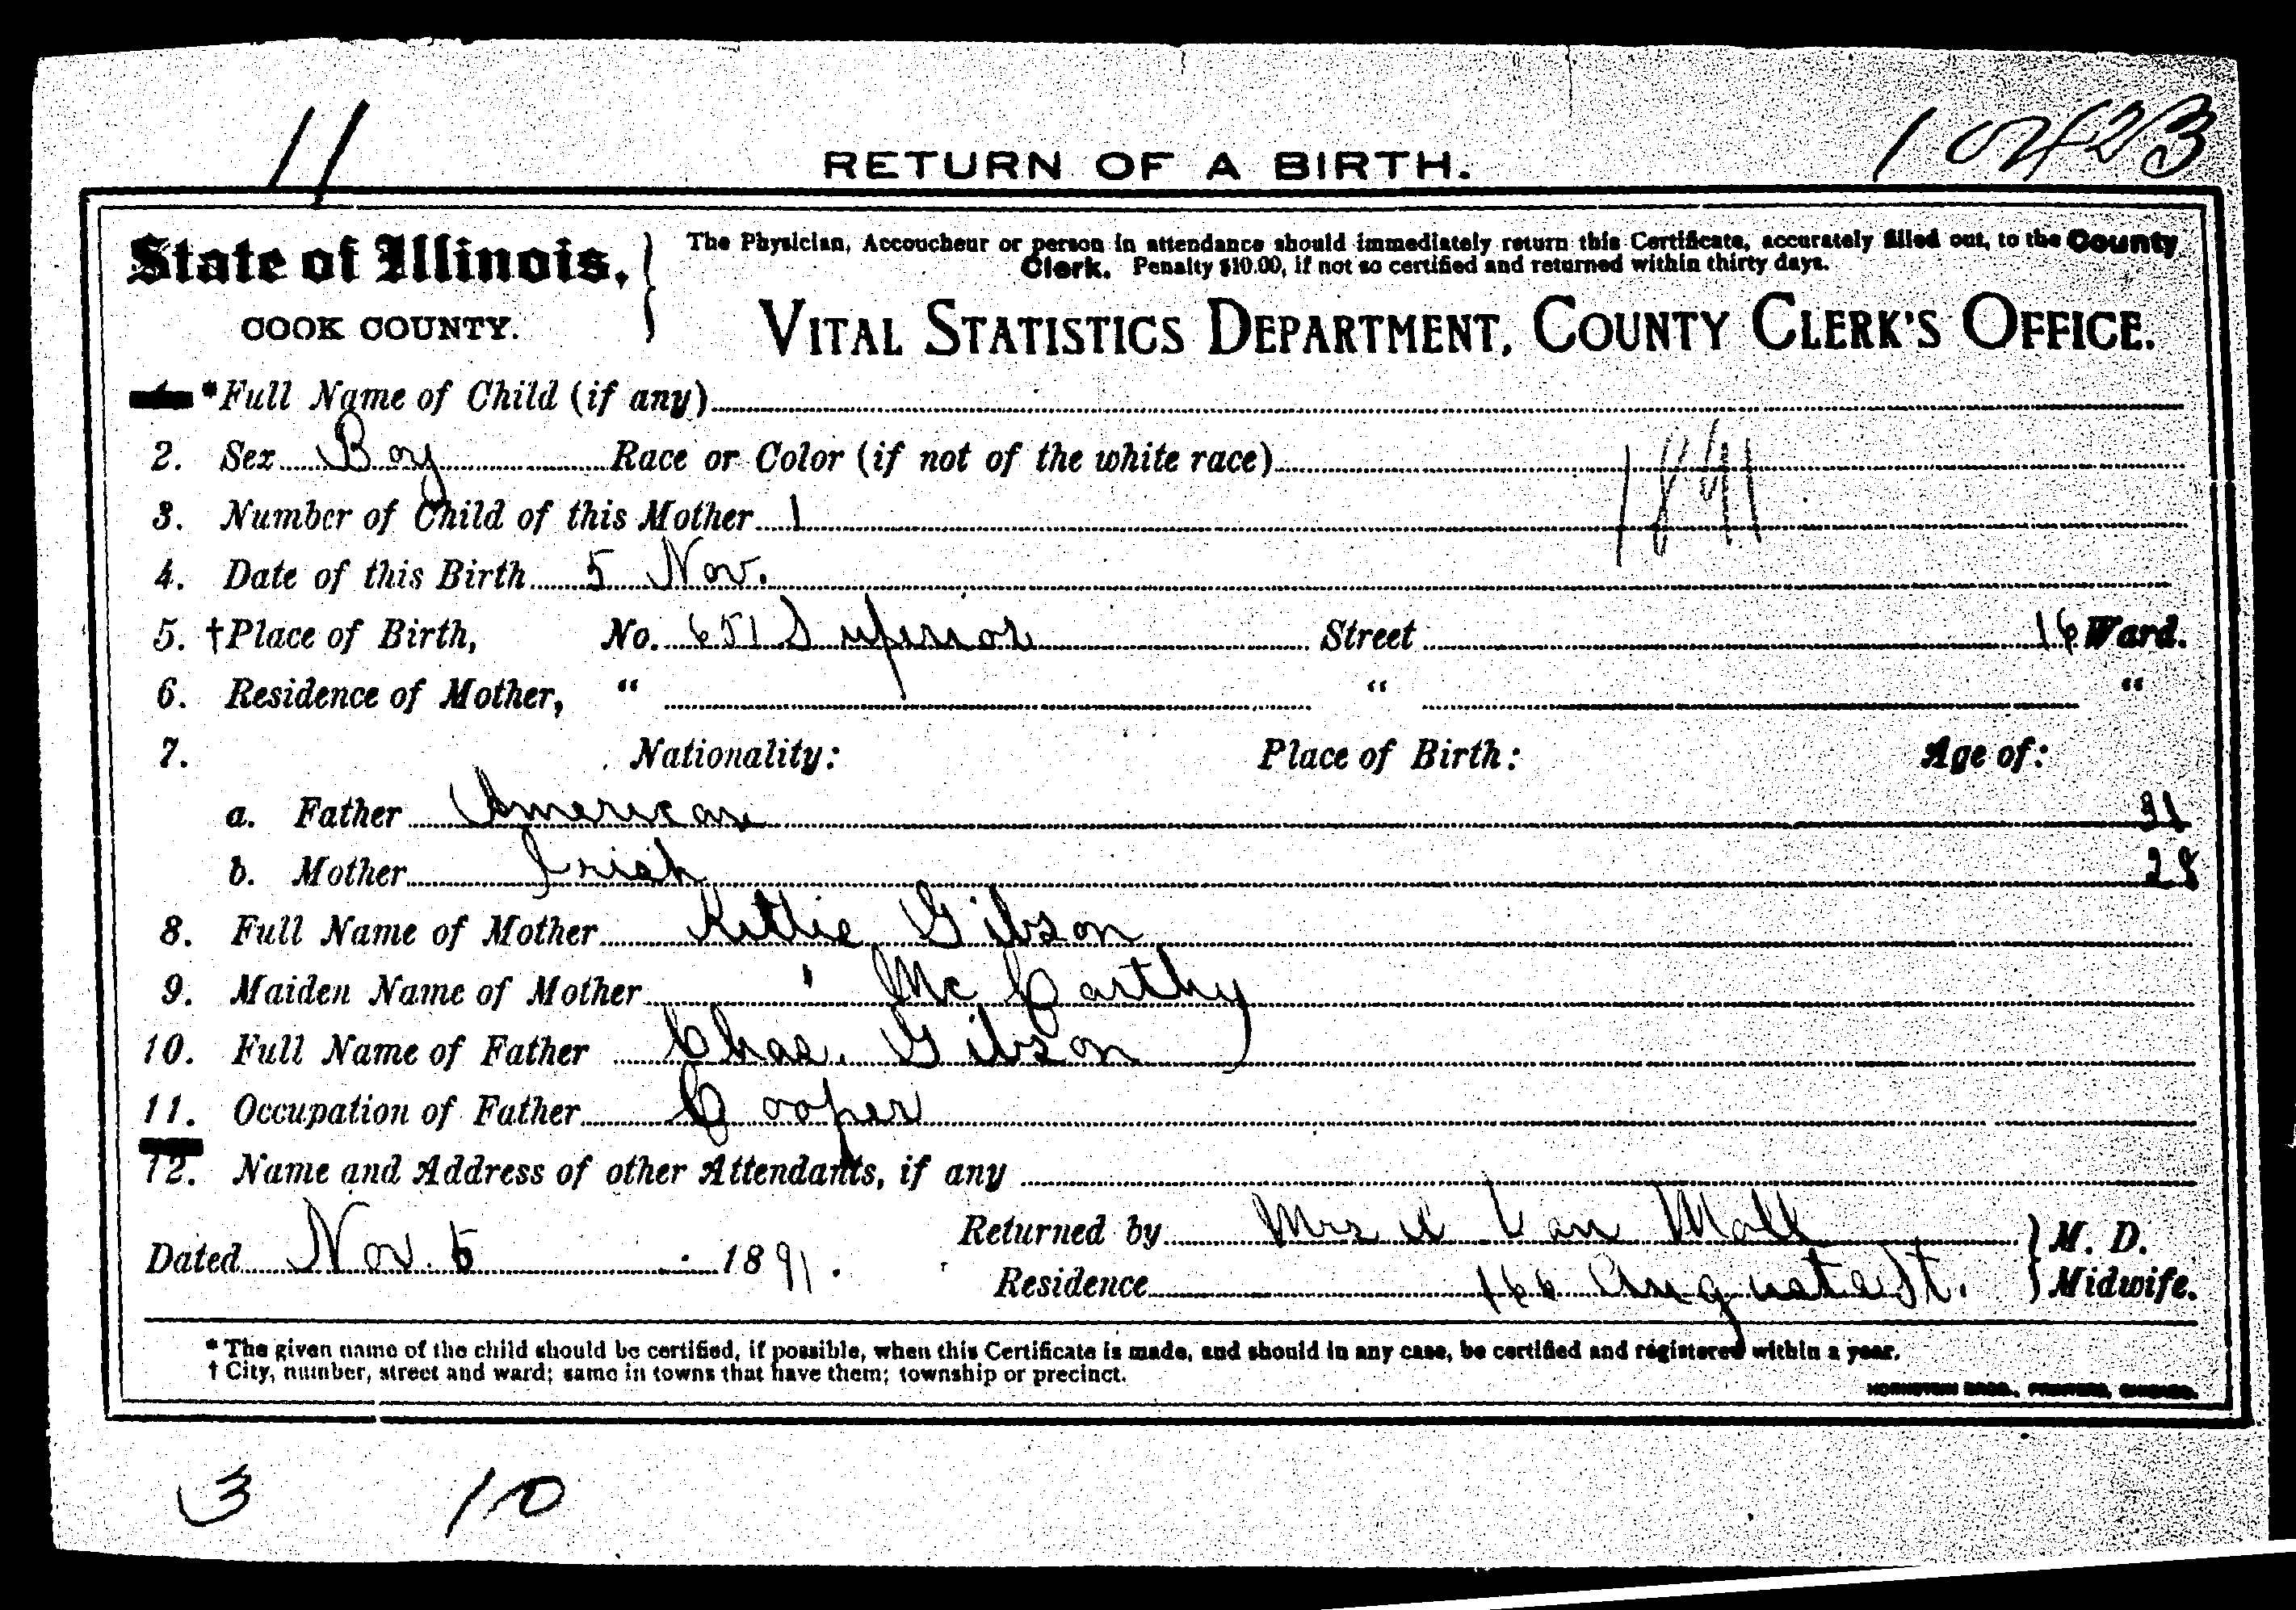 11
10423
RETURN OF A BIRTH.
State of Illinois,
COOK COUNTY.
The Physician, Accoucheur or person in attendance should immediately return this Certificate, accurately filled out, to the County
Clerk. Penalty $10.00, if not so certified and returned within thirty days.
VITAL STATISTICS DEPARTMENT, COUNTY CLERK'S OFFICE.
*Full Name of Child (if any)
2. Sex Boy Race or Color (if not of the white race)
1891
3. Number of Child of this Mother 1
4. Date of this Birth 5 Nov.
5. †Place of Birth, No. 651 Superior Street 16 Ward.
6. Residence of Mother, " " "
7. Nationality: Place of Birth: Age of:
a. Father American 31
b. Mother Irish 28
8. Full Name of Mother Kittie Gibson
9. Maiden Name of Mother " Mc Carthy
10. Full Name of Father Chas. Gibson
11. Occupation of Father Cooper
12. Name and Address of other Attendants, if any
Dated Nov. 5 1891.
Returned by Mrs Van Moll M. D.
Residence 166 Augusta St. Midwife.
* The given name of the child should be certified, if possible, when this Certificate is made, and should in any case, be certified and registered within a year.
† City, number, street and ward; same in towns that have them; township or precinct.
HORNSTEIN BROS., PRINTERS, CHICAGO.
3 10